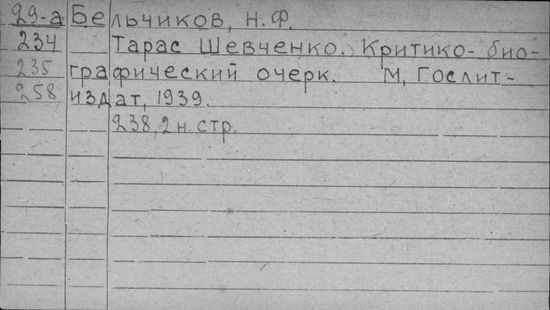 29-а Бельчиков, Н.Ф.
234 Тарас Шевченко. Критико-био-
235 графический очерк. М, Гослит-
258 издат, 1939.
238, 2 н. стр.